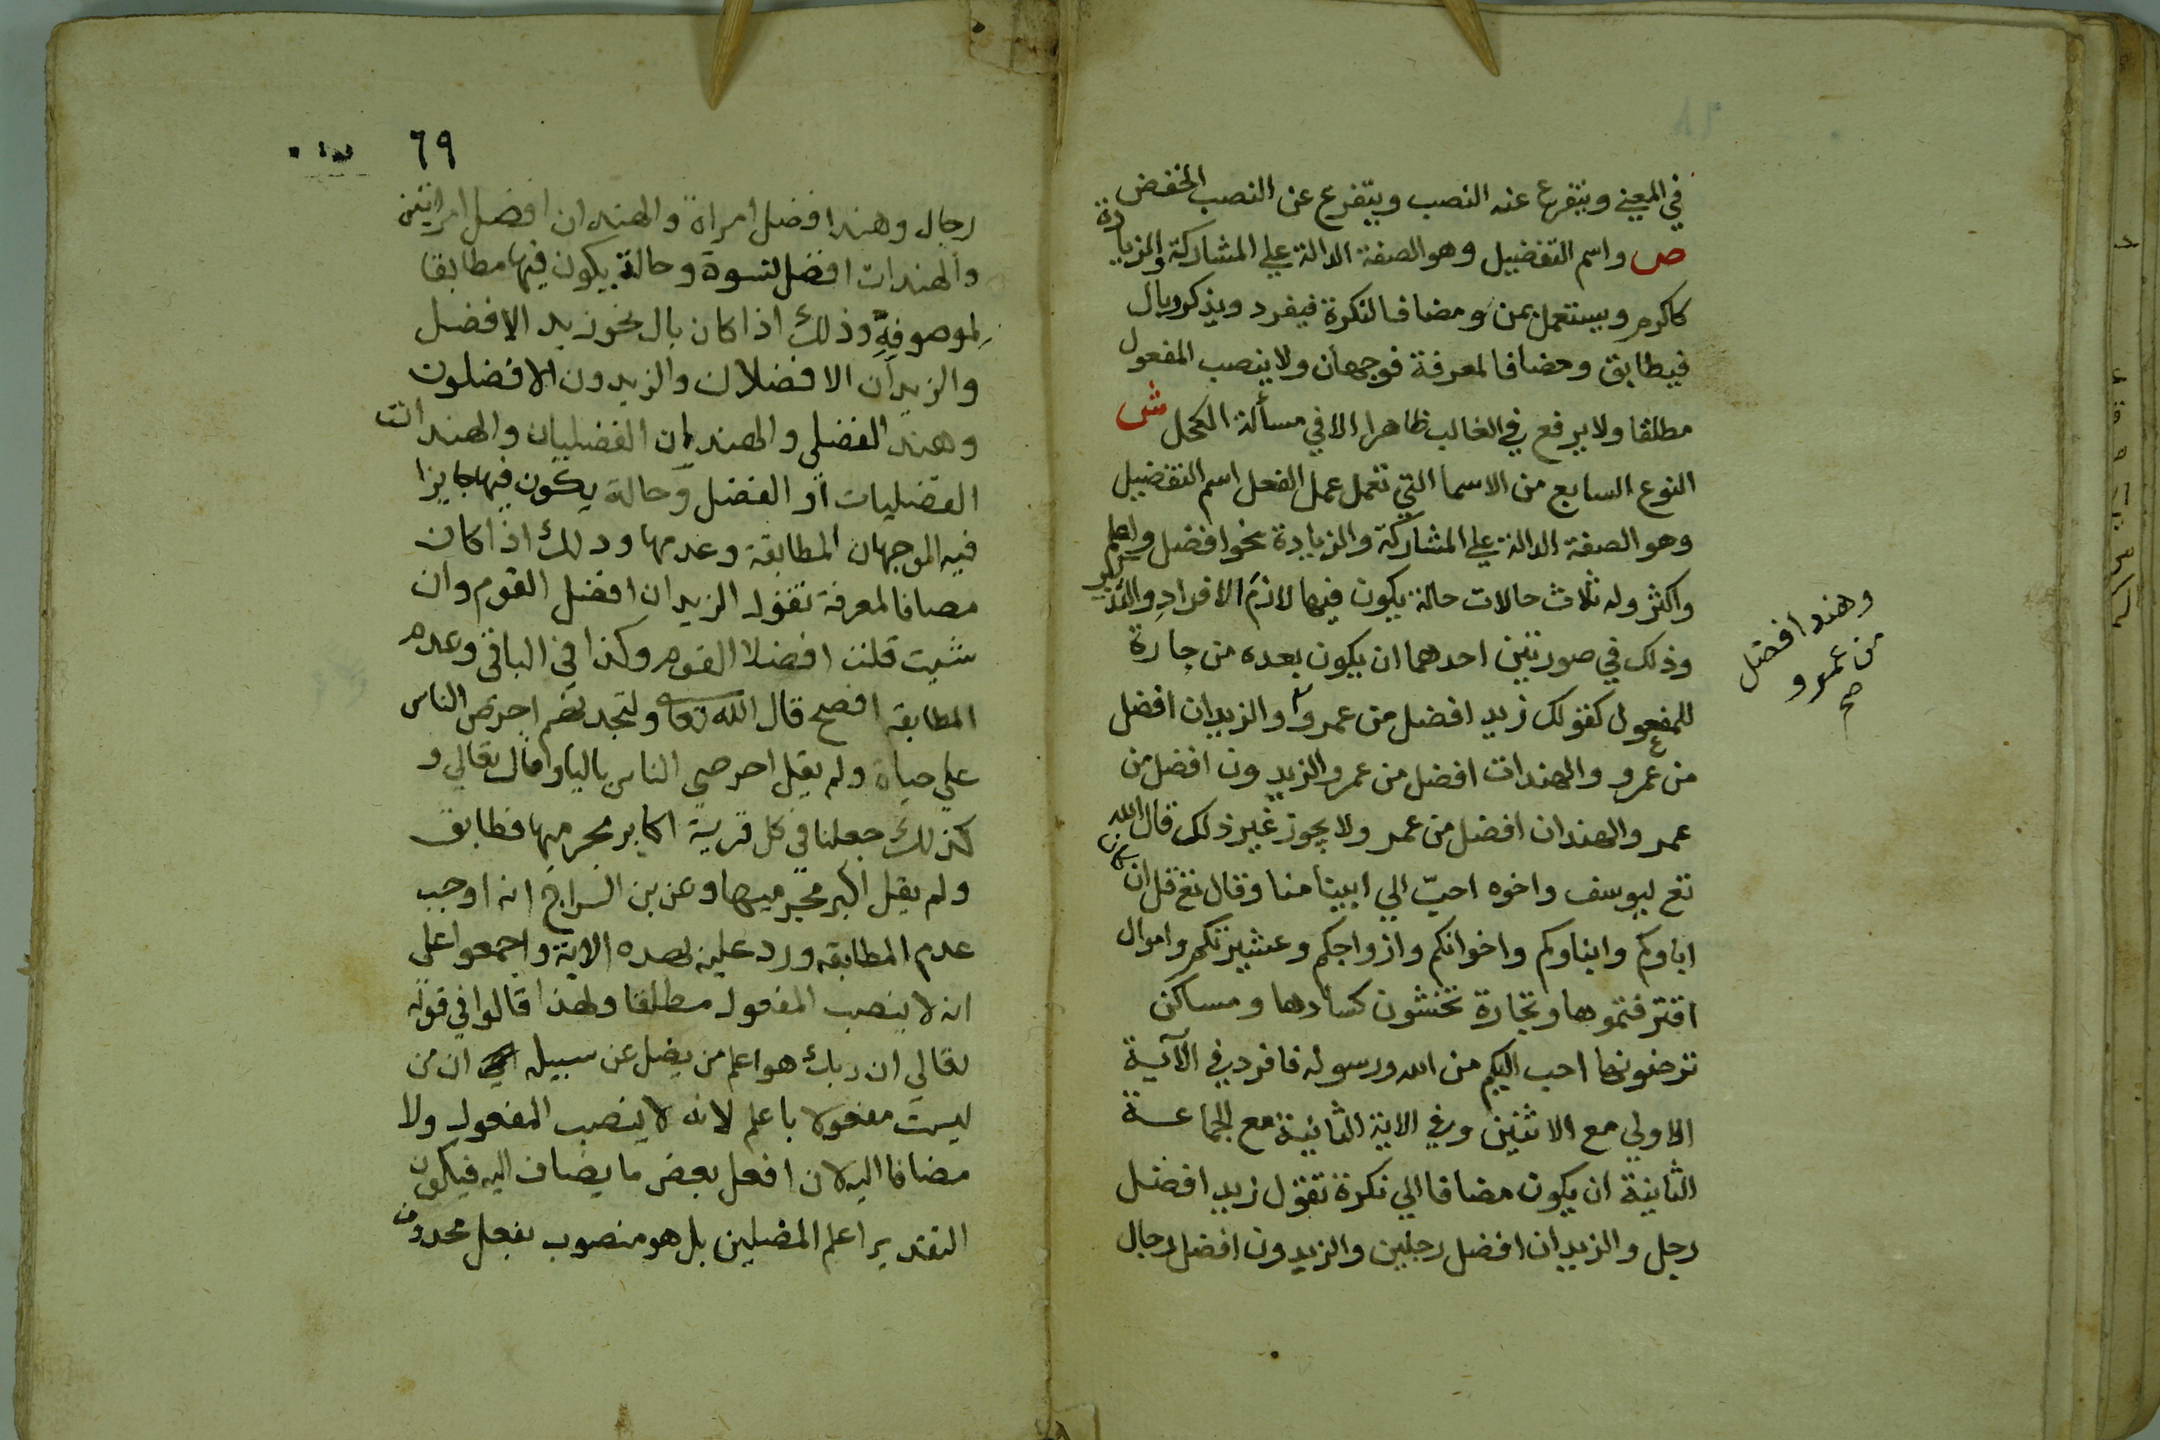 في المعني ويتفرع عنه النصب ويتفرع عن النصب الخفض
ص واسم التفضيل وهو الصفة الدالة علي المشاركة والزيادة
كاكرم ويستعمل بمن ومضافا لنكرة فيفرد ويذكر وبال
فيطابق ومضافا لمعرفة فوجهان ولا ينصب المفعول
مطلقا ولا يرفع في الغالب ظاهرا الا في مسألة الكحل ش
النوع السابع من الاسما التي تعمل عمل الفعل اسم التفضيل
وهو الصفة الدالة علي المشاركة والزيادة نحو افضل واعلم
واكثر وله ثلاث حالات حالة يكون فيها لازم الافراد والتذكير
وذلك في صورتين احدهما ان يكون بعده من جارة
للمفعول كقولك زيد افضل من عمرو والزيدان افضل
من عمرو والهندات افضل من عمرو والزيدون افضل من
عمر والهندان افضل من عمر ولا يجوز غير ذلك قال الله
تع ليوسف واخوه احبّ الي ابينا منا وقال تع قل ان كان
اباوكم وابناوكم واخوانكم وازواجكم وعشيرتكم واموال
اقترفتموها وتجارة تخشون كسادها ومساكن
ترضونها احب اليكم من الله ورسوله فافرد في الآية
الاولي مع الاثنين وفي الاية الثانية مع الجماعة
الثانية ان يكون مضافا الي نكرة تقول زيد افضل
رجل والزيدان افضل رجلين والزيدون افضل رجال
وهند افضل
من عمرو
صح
٦٩
رجال وهند افضل امراة والهندان افضل امراتين
والهندات افضل نسوة وحالة يكون فيها مطابقا
لموصوفه وذلك اذا كان بال نحو زيد الافضل
والزيدان الافضلان والزيدون الافضلون
وهند الفضلي والهندان الفضليان والهندات
الفضليات او الفضل وحالة يكون فيها جايزا
فيه الموجهان المطابقة وعدمها وذلك اذا كان
مضافا لمعرفة تقول الزيدان افضل القوم وان
شيت قلت افضلا القوم وكذا في الباقي وعدم
المطابقة افصح قال الله تعالى ولتجدنهم احرص الناس
علي حياة ولم يقل احرصي الناس باليا وقال تعالي و
كذلك جعلنا في كل قرية اكابر مجرميها فطابق
ولم يقل اكبر مجرميها وعن بن السراج انه اوجب
عدم المطابقه ورد عليه بهذه الاية واجمعوا علي
انه لا ينصب المفعول مطلقا ولهذا قالوا في قوله
تعالي ان ربك هو اعلم من يضل عن سبيله ان من
ليست مفعولا باعلم لانه لا ينصب المفعول ولا
مضافا اليه لان افعل بعض ما يضاف اليه فيكون
التقدير اعلم المضلين بل هو منصوب بفعل محذوف